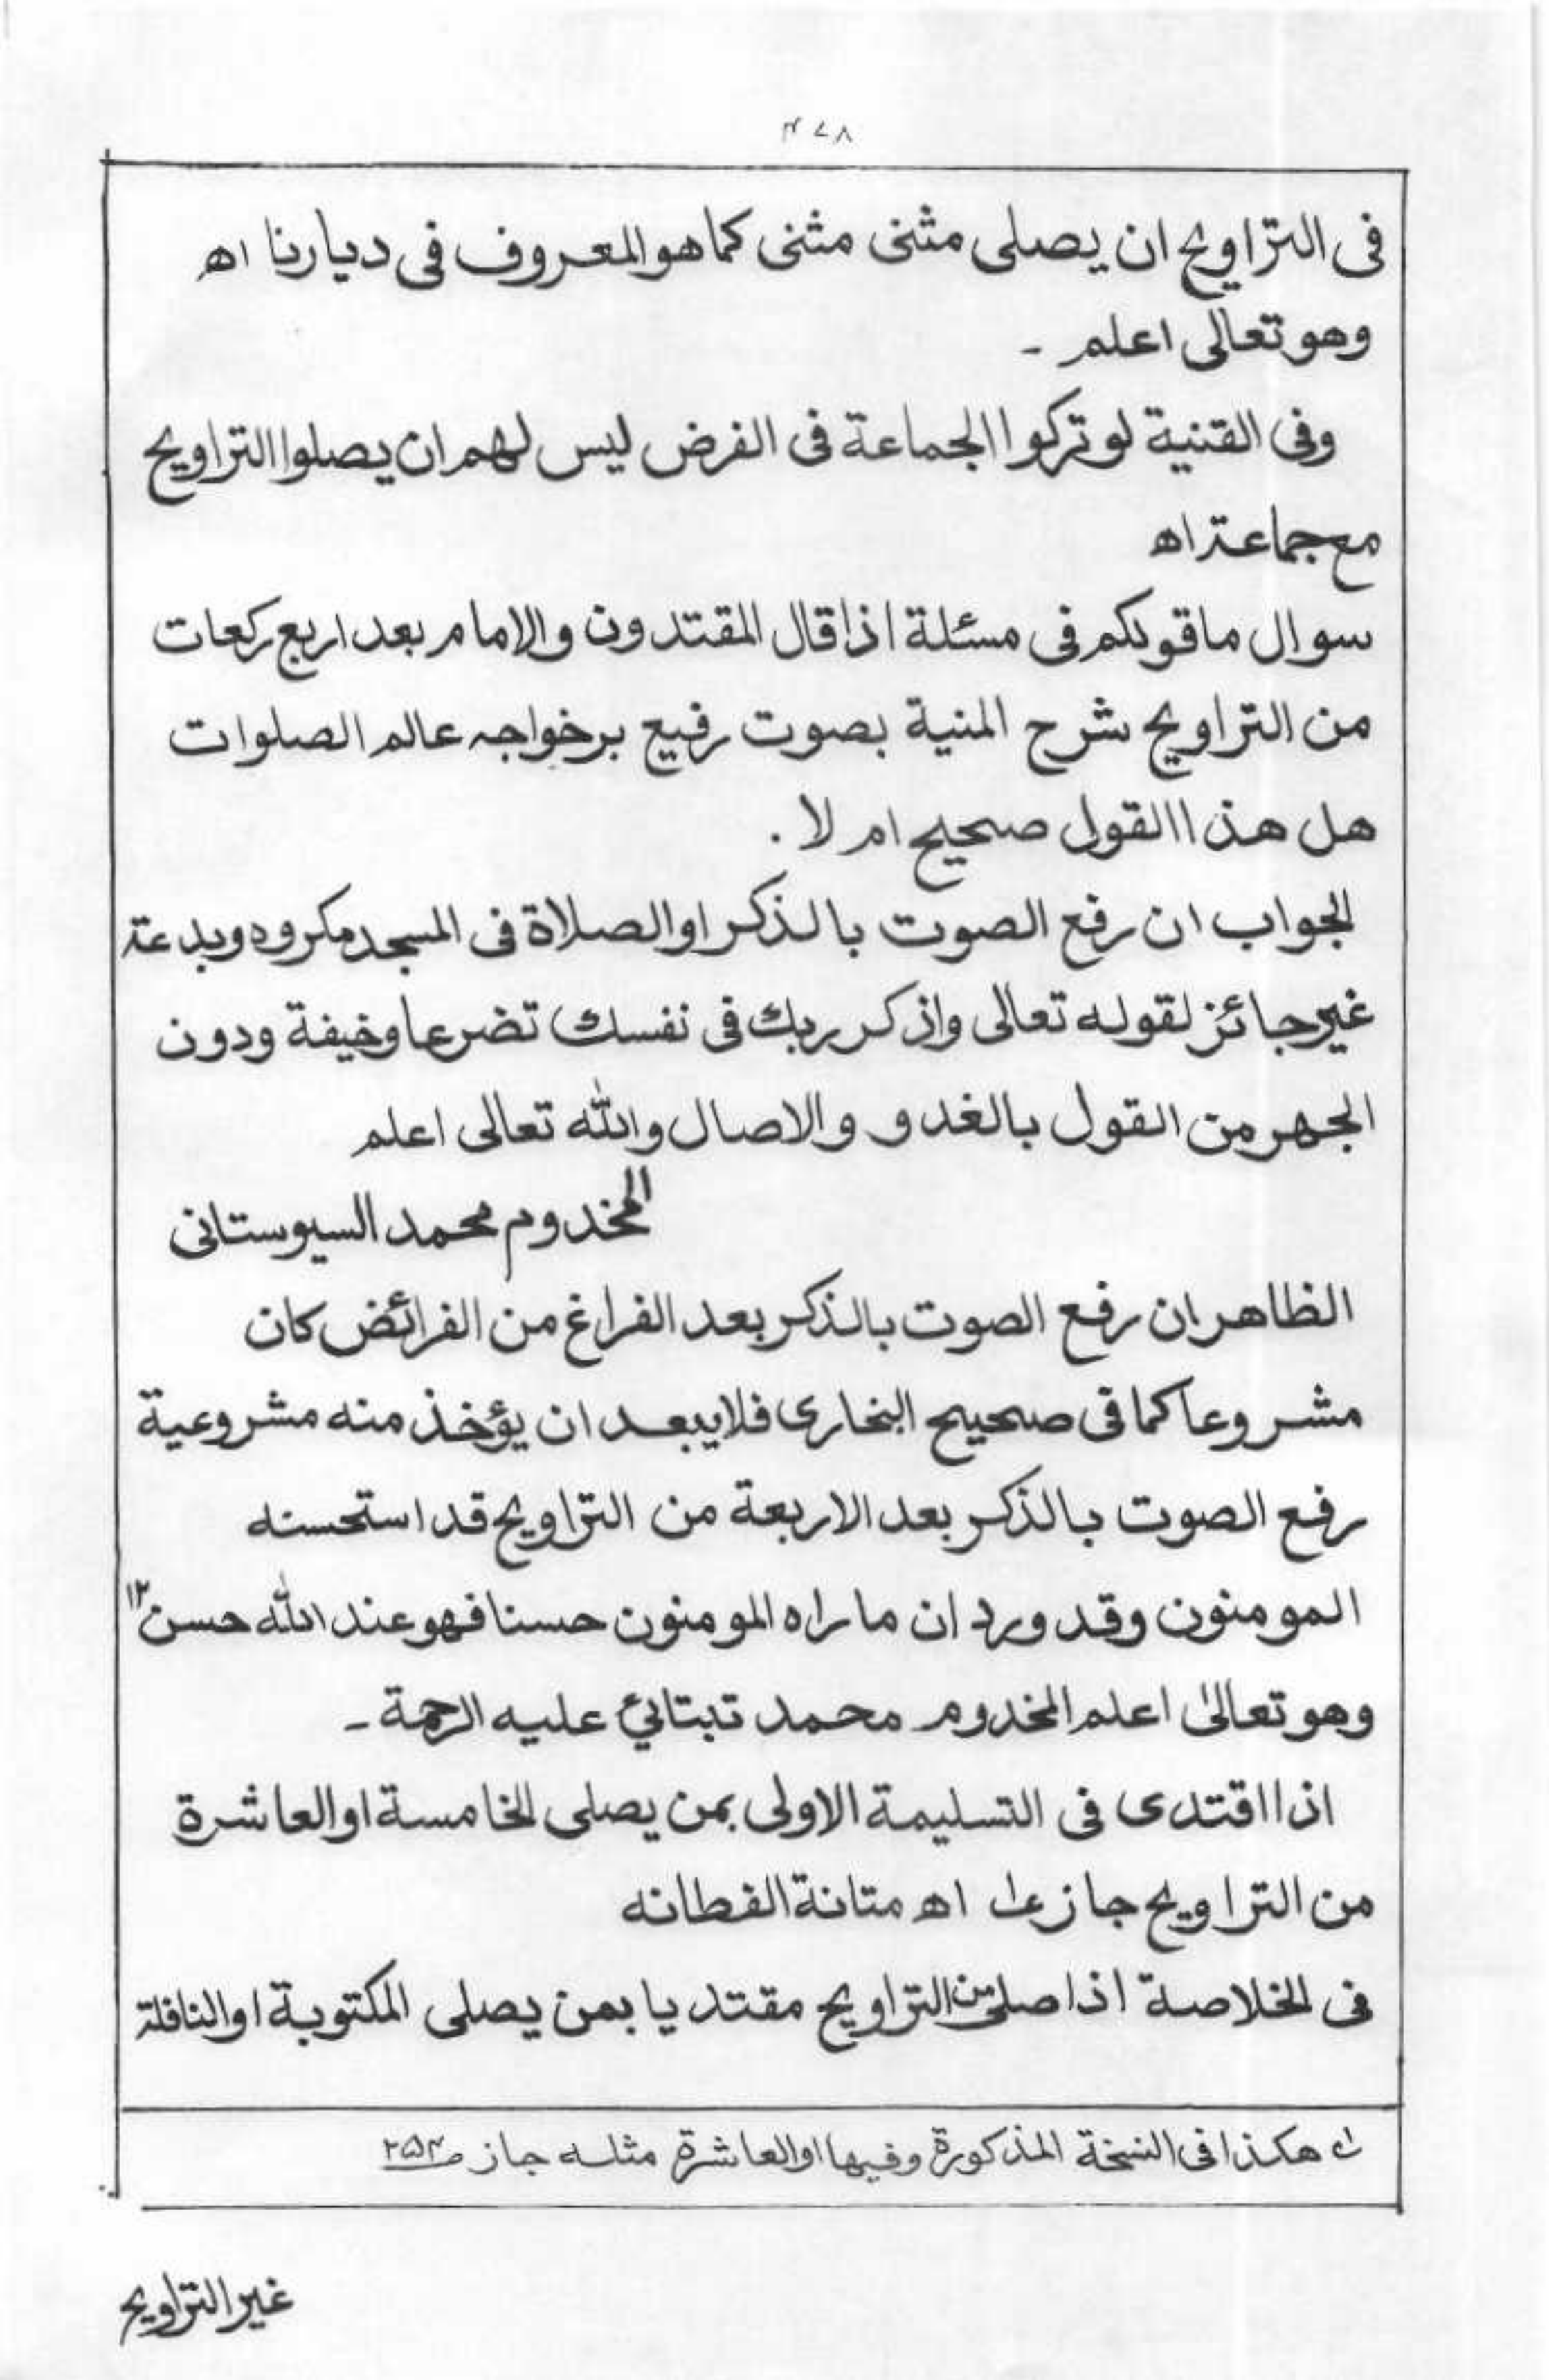 ۴۷۸
فی التراویح ان یصلی مثنی مثنی کماهوالمعروف فی دیارنا اھ
وھو تعالی اعلم ۔
وفی القنیة لو ترکوا الجماعة فی الفرض لیس لھم ان یصلوا التراویح
مع جماعة اھ
سوال ماقولکم فی مسئلة اذا قال المقتدون والامام بعد اربع رکعات
من التراویح شرح المنیة بصوت رفیع برخواجہ عالم الصلوات
ھل ھذا القول صحیح ام لا .
الجواب ان رفع الصوت بالذکر او الصلاة فی المسجد مکروہ وبدعة
غیر جائز لقوله تعالی واذکر ربك فی نفسك تضرعا وخیفة ودون
الجھر من القول بالغدو والاصال واللّٰه تعالی اعلم
المخدوم محمد السیوستانی
الظاھر ان رفع الصوت بالذکر بعد الفراغ من الفرائض کان
مشروعا کما فی صحیح البخاری فلا یبعد ان یؤخذ منه مشروعیة
رفع الصوت بالذکر بعد الاربعة من التراویح قد استحسنه
المومنون وقد ورد ان ماراه المومنون حسنا فھو عند اللّٰه حسن ۱۲
وھو تعالیٰ اعلم المخدوم محمد تبتائی علیه الرحمة ۔
اذا اقتدی فی التسلیمة الاولی بمن یصلی الخامسة او العاشرة
من التراویح جاز اھ متانة الفطانه
فی الخلاصة اذا صلی من التراویح مقتدیا بمن یصلی المکتوبة او النافلة
ھکذا فی النسخة المذکورة وفیھا او العاشرة مثله جاز ص۲۵۴
غیر التراویح